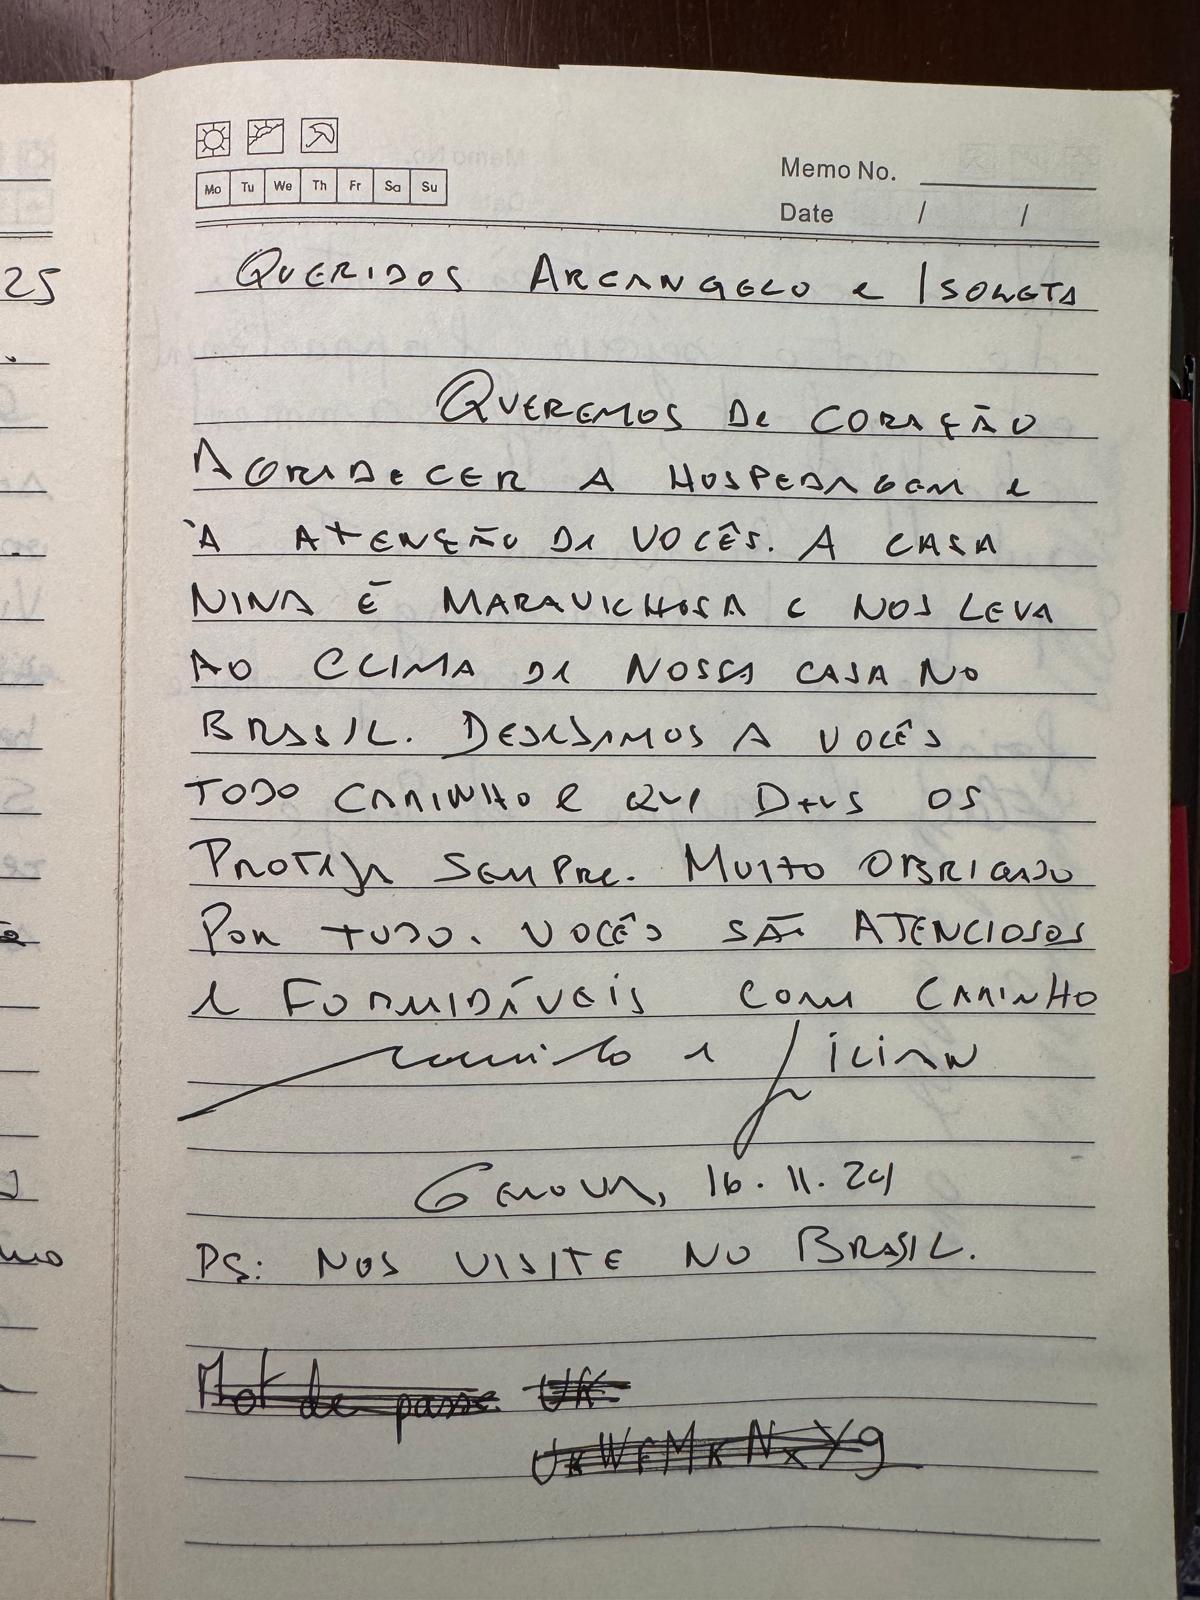 Mo Tu We Th Fr Sa Su
Memo No.
Date / /
QUERIDOS ARCANGELO e ISOLETA
QUEREMOS De CORAÇÃO
AGRADECER A HOSPEDAGEM e
À ATENÇÃO De VOCÊS. A CASA
NINA É MARAVILHOSA e NOS LEVA
AO CLIMA De NOSSA CASA NO
BRASIL. DESEJAMOS A VOCÊS
TODO CARINHO e QUE DEUS OS
PROTEJA SEMPRE. MUITO OBRIGADO
POR TUDO. VOCÊS SÃO ATENCIOSOS
e FORMIDÁVEIS COM CARINHO
e LILIAN
GENOVA, 16.11.24
PS: NOS VISITE NO BRASIL.
Mot de passe UK
25